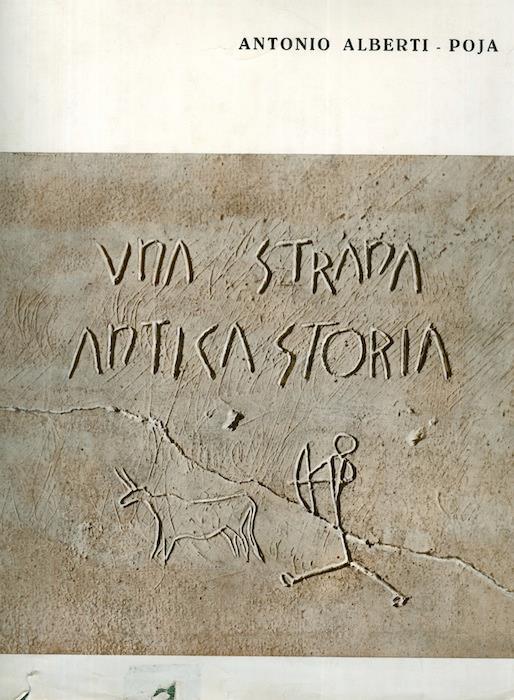 ANTONIO ALBERTI - POJA
UNA STRANA
ANTICA STORIA